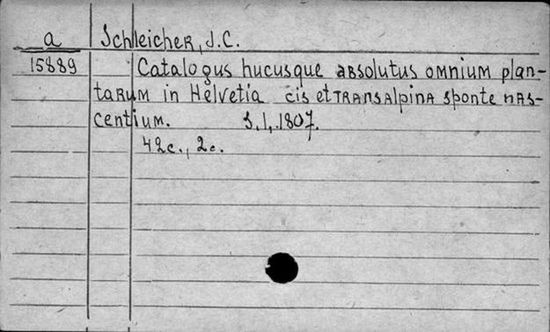 a Schleicher, J.C.
15889 Catalogus hucusque absolutus omnium plan-
tarum in Helvetia cis et transalpina sponte nas-
centium. S.l., 1807.
42c., 2c.